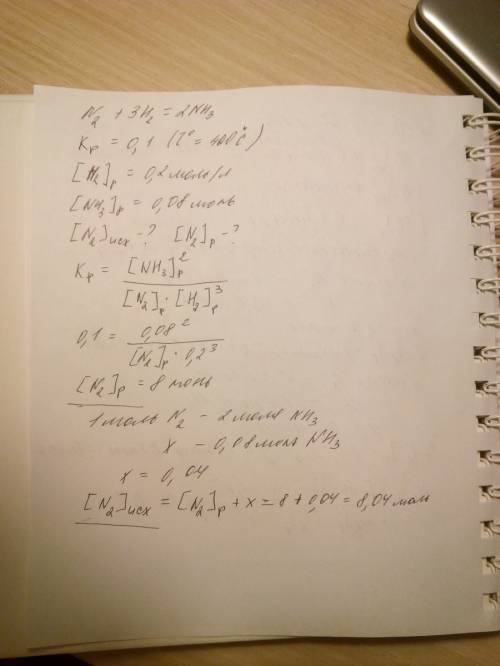 N₂ + 3H₂ = 2NH₃
Kр = 0,1 (t° = 400°C)
[H₂]р = 0,2 моль/л
[NH₃]р = 0,08 моль
[N₂]исх - ? [N₂]р - ?
Kр = [NH₃]р² / [N₂]р · [H₂]р³
0,1 = 0,08² / [N₂]р · 0,2³
[N₂]р = 8 моль
1 моль N₂ - 2 моля NH₃
x - 0,08 моль NH₃
x = 0,04
[N₂]исх = [N₂]р + x = 8 + 0,04 = 8,04 моль